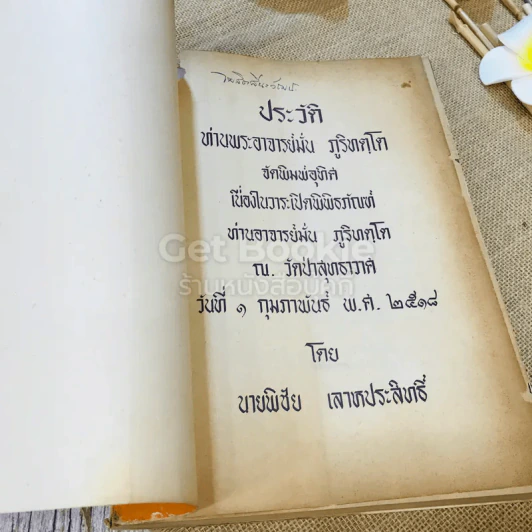 ประวัติ
ท่านพระอาจารย์มั่น ภูริทตฺโต
จัดพิมพ์อุทิศ
เนื่องในวาระเปิดพิพิธภัณฑ์
ท่านอาจารย์มั่น ภูริทตฺโต
Get Bookie
ณ. วัดป่าสุทธาวาศ
ร้านหนังสือนุ๊ก
วันที่ ๑ กุมภาพันธ์ พ.ศ. ๒๕๑๘
โดย
นายพิชัย เลาหประสิทธิ์